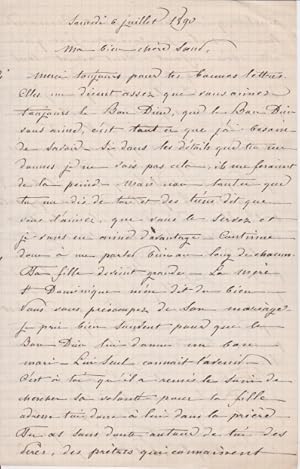 Samedi 6 juillet 1890
Ma bien chère Sœur,
Merci toujours pour tes bonnes lettres.
Elles me disent assez que vous aimez
toujours le Bon Dieu, que le Bon Dieu
vous aime, c'est tout ce que j'ai besoin
de savoir. Si dans les détails que tu me
donnes je ne vois pas cela, ils me feraient
de la peine. Mais non tout ce que
tu me dis de toi et des tiens dit que
vous l'aimez, que vous le servez et
je vous en aime davantage. Continue
donc à me parler bien au long de chacun.
Ta fille devient grande. La mère
St Dominique m'en dit du bien
Vous vous préoccupez de son mariage
je prie bien souvent pour que le
Bon Dieu lui donne un bon
mari. Lui seul connait l'avenir
C'est à toi qu'il a remis le soin de
chercher sa volonté pour ta fille
adresse toi donc à lui dans la prière
Tu as sans doute autour de toi des
Pères, des prêtres qui connaissent